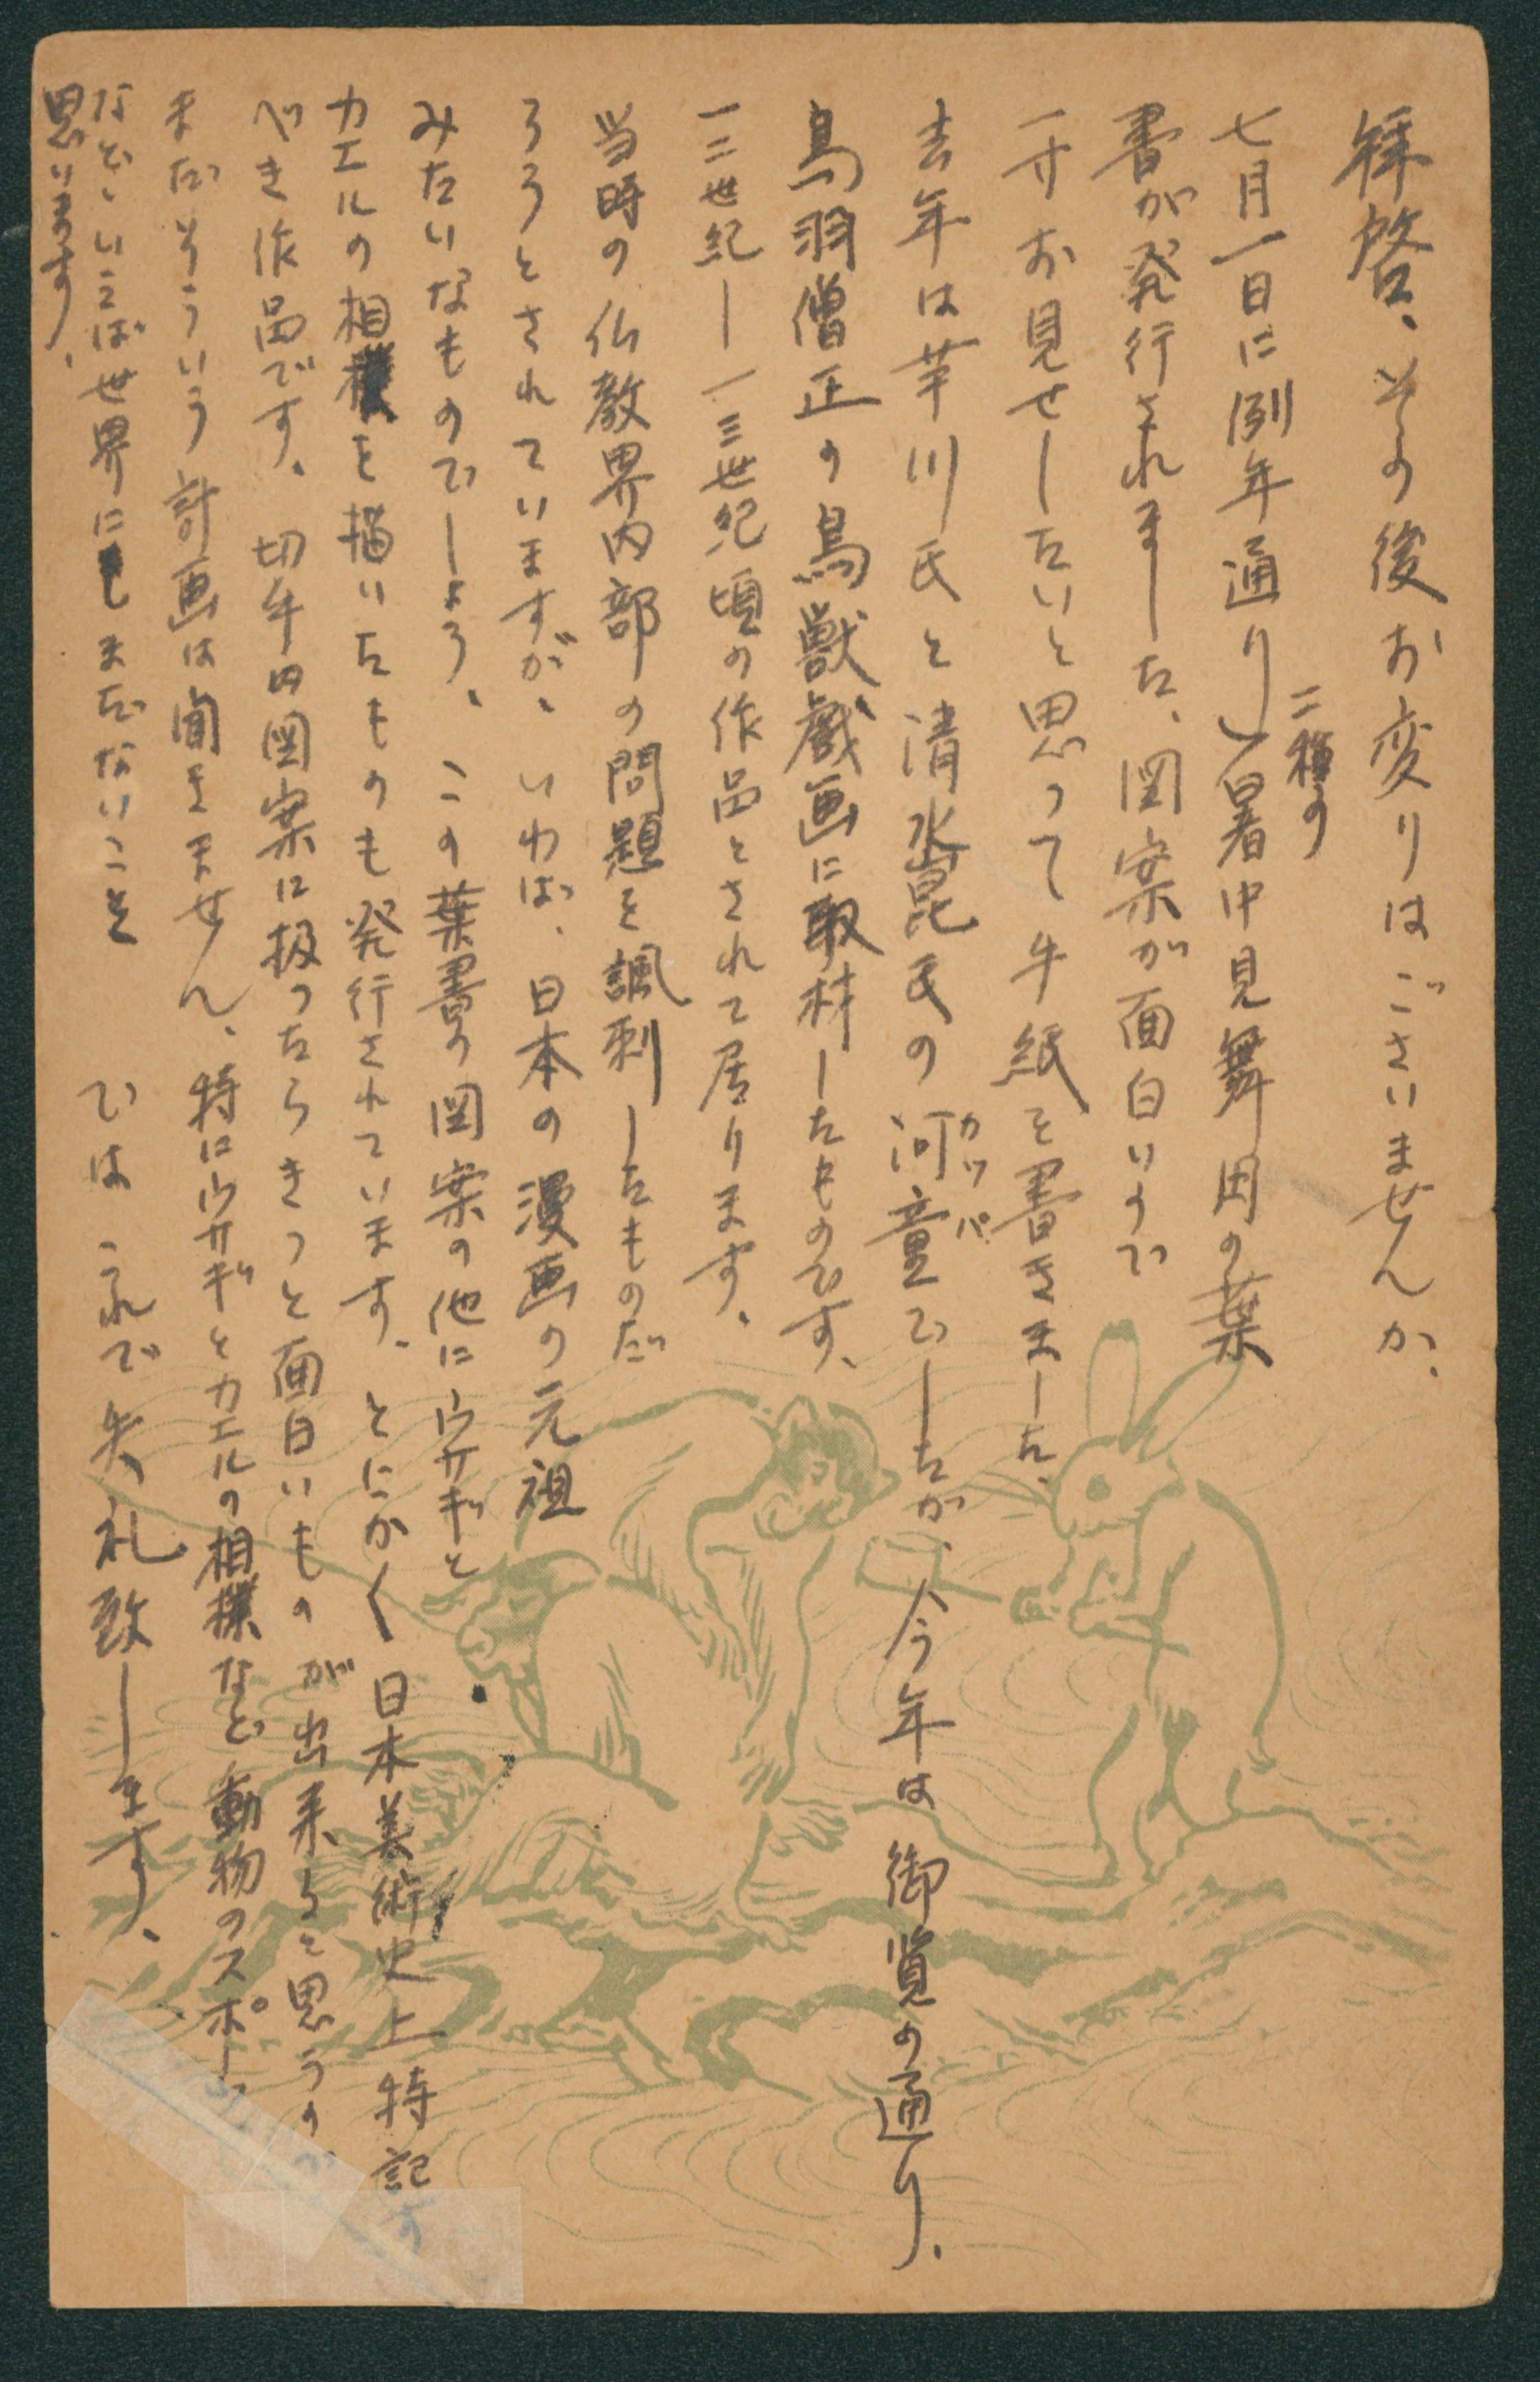 拝啓、その後お変りはございませんか、
七月一日に例年通り二種の暑中見舞用の葉
書が発行されました、図案が面白いので
一寸お見せしたいと思って手紙を書きました、
去年は芋川氏と清水崑氏の河童でしたが、今年は御覧の通り、
カッパ
鳥羽僧正の鳥獣戯画に取材したものです、
一二世紀ー一三世紀頃の作品とされて居ります、
当時の仏教界内部の問題を諷刺したものだ
ろうとされていますが、いわば、日本の漫画の元祖
みたいなものでしょう、この葉書の図案の他にウサギと
カエルの相撲を描いたものも発行されています、とにかく日本美術史上特記す
べき作品です、切手図案に扱ったらきっと面白いものが出来ると思うのが
まだそういう計画は聞きません、特にウサギとカエルの相撲など動物のスポーツ
などといえば世界にもまだないことと
思います、
では これで失礼致します、